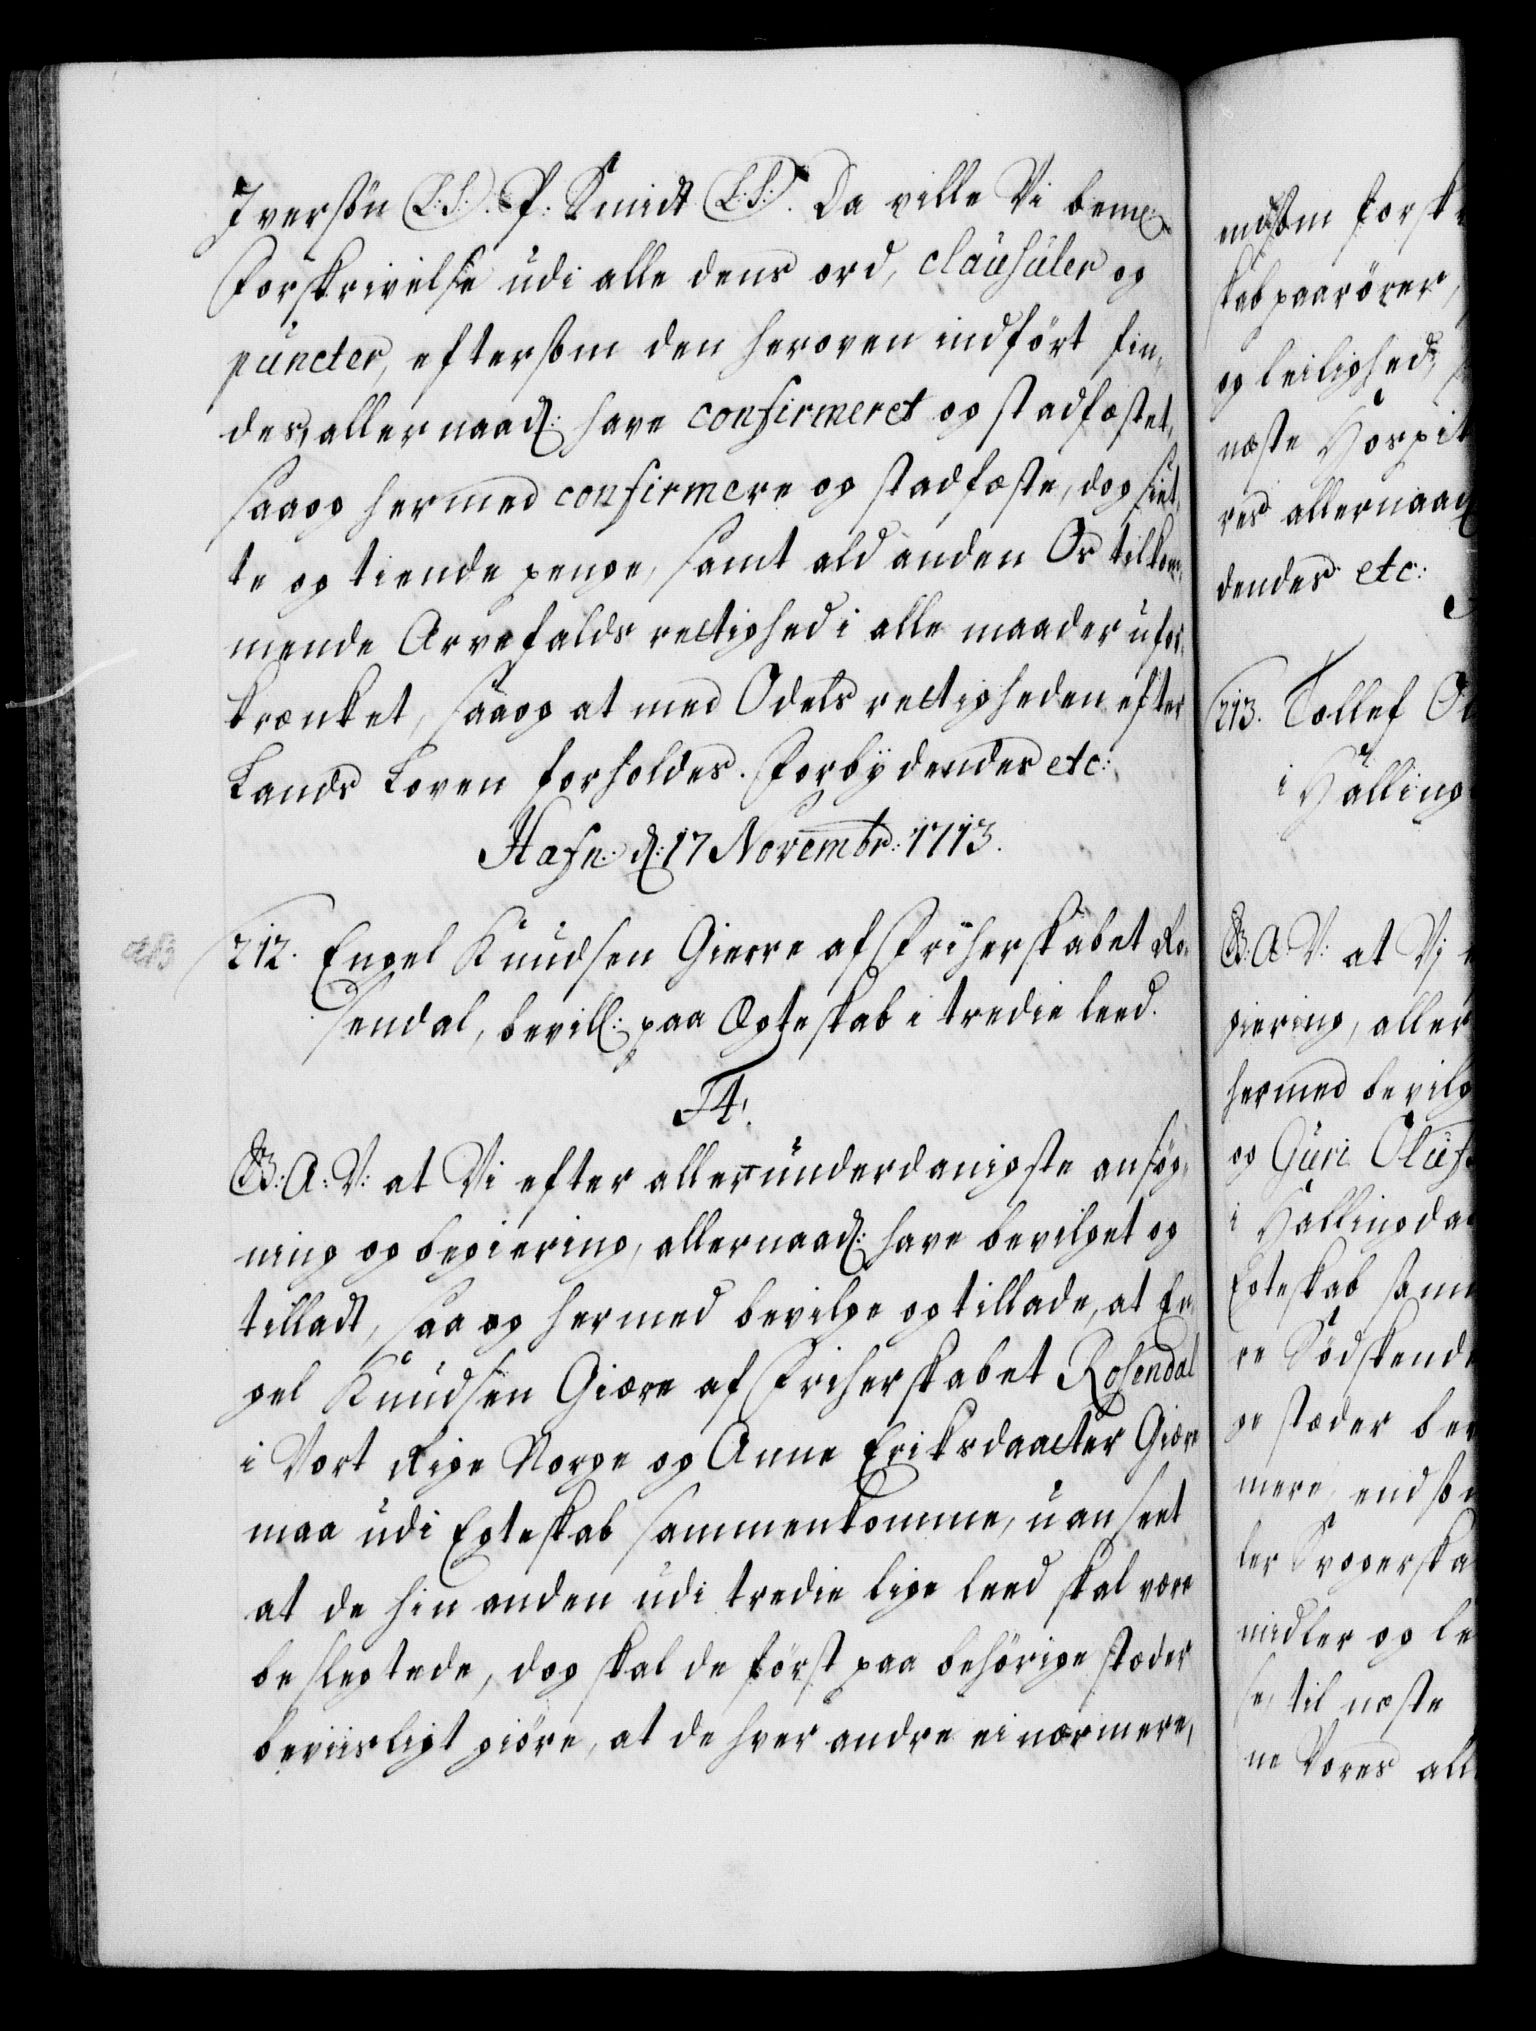 Iversön (L.S.). P: Smidt (L.S.). Da ville Vi bemt:
Forskrivelse udi alle dens ord, clausuler og
puncter, eftersom den heroven indfört fin¬
des, allernaad: have confirmeret og stadfæstet,
saa og hermed confirmere og stadfæste, dog siet¬
te og tiende penge, samt ald anden Os tilkom¬
mende Arvefalds rectighed i alle maader ufor¬
krænket, saa og at med Odels rectigheden efter
Lands Loven forholdes. Forbydendes etc:
Hafn: d: 17 Novembr: 1713.
212. Engel Knudsen Gierre af Friherskabet Ro¬
sendal, bevill: paa Ægteskab i tredie leed.
F4.
G: A: V: at Vi efter allerunderdanigste ansög¬
ning og begiering, allernaad: have bevilget og
tilladt, saa og hermed bevilge og tillade, at En¬
gel Knudsen Giære af Friherskabet Rosendal
i Vort Rige Norge og Anne Eriksdaatter Giære
maa udi Egteskab sammenkomme, uanseet
at de hin anden udi tredie lige leed skal være
beslegtede, dog skal de först paa behörige stæder
beviisligt giöre, at de hver andre ei nærmere,
endsom forsk
skab paarörer,
og leilighed,
næste Hospit
res allernaad
dendes etc:
213. Tollef O
i Halling
G: A: V: at Vj
giering, aller
hermed bevilg
og Guri Oluf
i Hallingda
Egteskab sam
re Södskende
ge stæder be
mere, endso
ler Svogerska
midler og le
se, til næste
ne Vores all